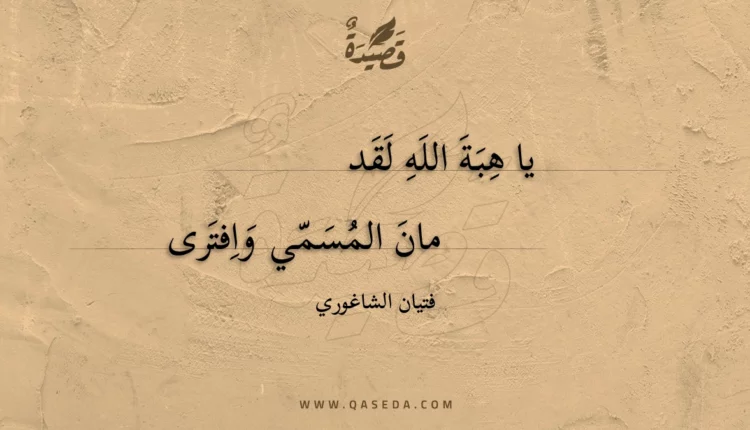 قَصِيدَةٌ
يا هِبَةَ اللَهِ لَقَد
مانَ المُسَمّي وَاِفتَرى
فتيان الشاغوري
WWW.QASEDA.COM